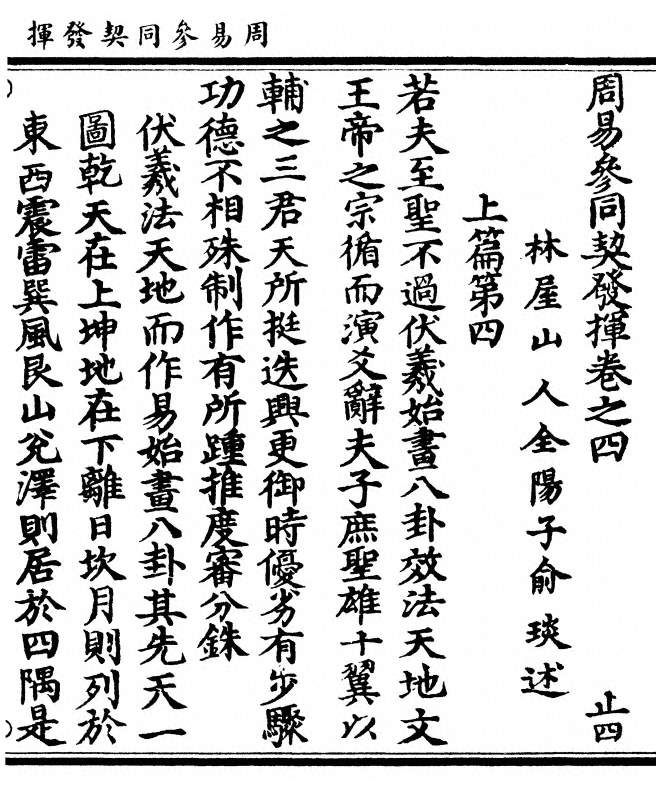 周易參同契發揮
周易參同契發揮卷之四 止四
林屋山人全陽子俞琰述
上篇第四
若夫至聖不過伏羲始畫八卦效法天地文
王帝之宗循而演爻辭夫子庶聖雄十翼以
輔之三君天所挺迭興更御時優劣有步驟
功德不相殊制作有所踵推度審分銖
伏羲法天地而作易始畫八卦其先天一
圖乾天在上坤地在下離日坎月則列於
東西震雷巽風艮山兌澤則居於四隅是